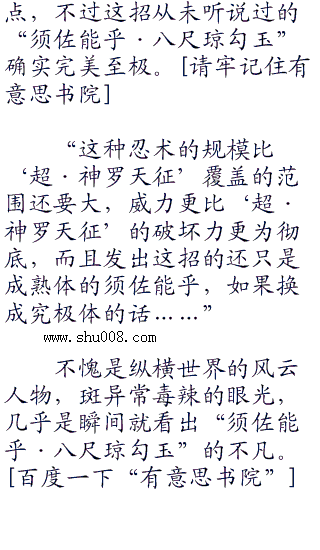 点，不过这招从未听说过的
“须佐能乎·八尺琼勾玉”
确实完美至极。[请牢记住有
意思书院]
“这种忍术的规模比
‘超·神罗天征’覆盖的范
围还要大，威力更比‘超·
神罗天征’的破坏力更为彻
底，而且发出这招的还只是
成熟体的须佐能乎，如果换
成究极体的话……”
www.shu008.com
不愧是纵横世界的风云
人物，斑异常毒辣的眼光，
几乎是瞬间就看出“须佐能
乎·八尺琼勾玉”的不凡。
[百度一下“有意思书院”]